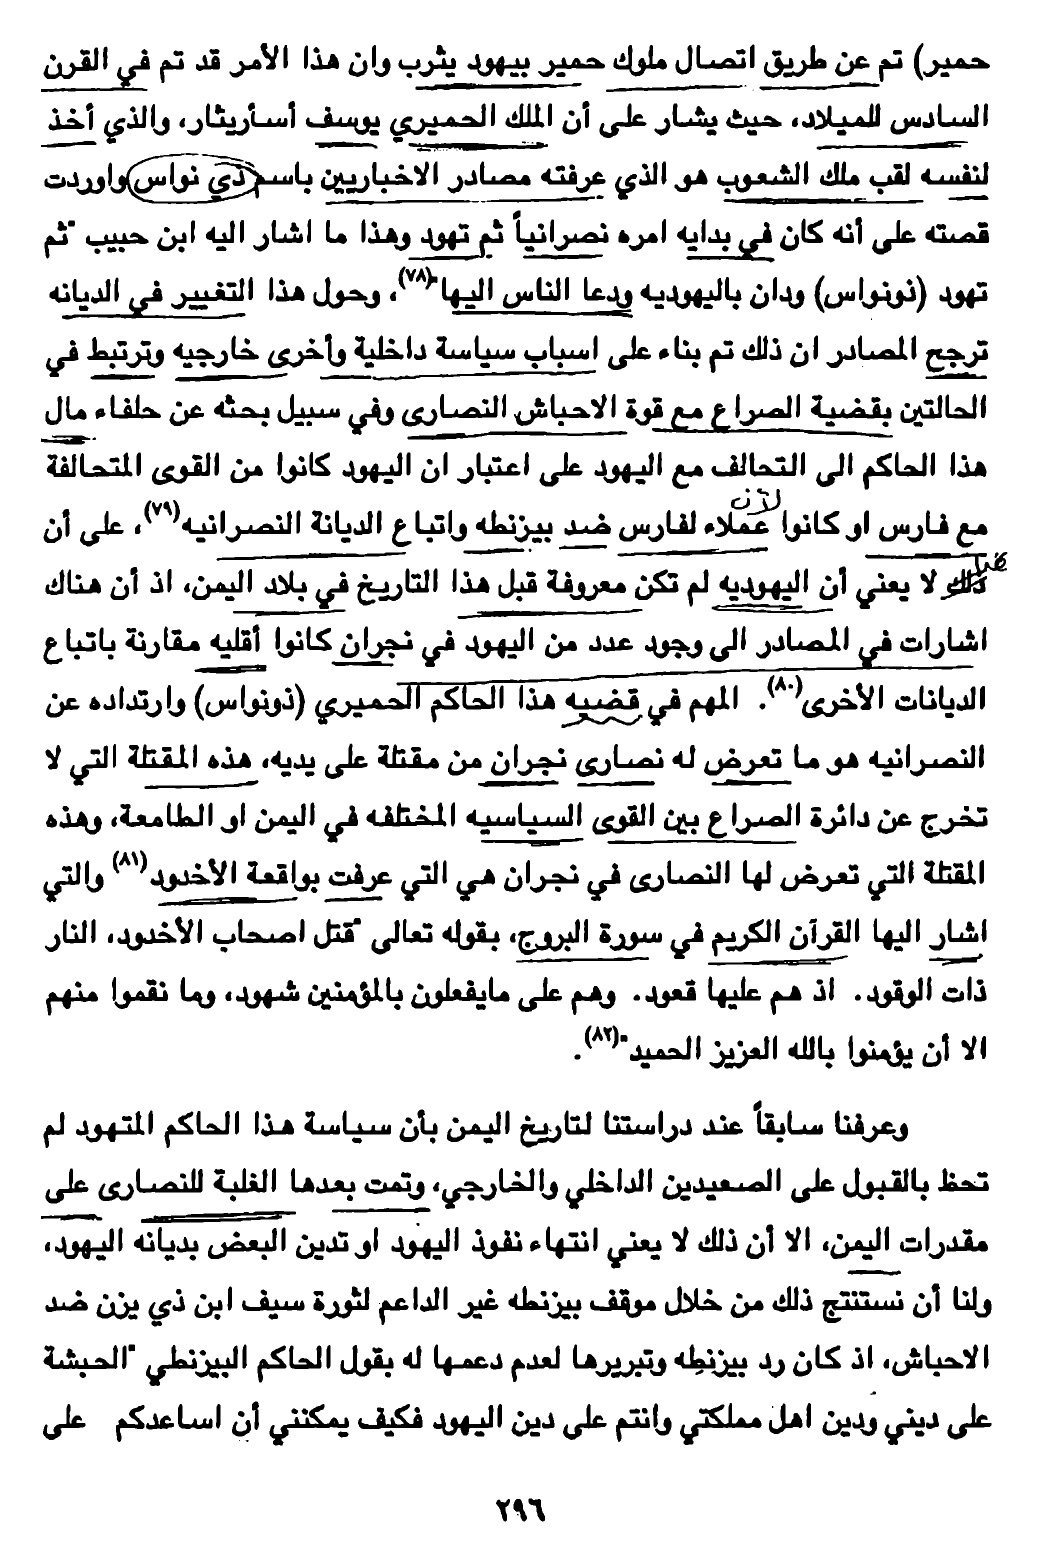 حمير) تم عن طريق اتصال ملوك حمير بيهود يثرب وان هذا الأمر قد تم في القرن
السادس للميلاد، حيث يشار على أن الملك الحميري يوسف أسأريثار، والذي أخذ
لنفسه لقب ملك الشعوب هو الذي عرفته مصادر الاخباريين باسم ذي نواس واوردت
قصته على أنه كان في بدايه امره نصرانياً ثم تهود وهذا ما اشار اليه ابن حبيب "ثم
تهود (ذونواس) ودان باليهوديه ودعا الناس اليها"(٧٨)، وحول هذا التغيير في الديانه
ترجح المصادر ان ذلك تم بناء على اسباب سياسة داخلية وأخرى خارجيه وترتبط في
الحالتين بقضية الصراع مع قوة الاحباش النصارى وفي سبيل بحثه عن حلفاء مال
هذا الحاكم الى التحالف مع اليهود على اعتبار ان اليهود كانوا من القوى المتحالفة
لآن
مع فارس او كانوا عملاء لفارس ضد بيزنطه واتباع الديانة النصرانيه(٧٩)، على أن
ذلك لا يعني أن اليهوديه لم تكن معروفة قبل هذا التاريخ في بلاد اليمن، اذ أن هناك
اشارات في المصادر الى وجود عدد من اليهود في نجران كانوا أقليه مقارنة باتباع
الديانات الأخرى(٨٠). المهم في قضيه هذا الحاكم الحميري (ذونواس) وارتداده عن
النصرانيه هو ما تعرض له نصارى نجران من مقتلة على يديه، هذه المقتلة التي لا
تخرج عن دائرة الصراع بين القوى السياسيه المختلفه في اليمن او الطامعة، وهذه
المقتلة التي تعرض لها النصارى في نجران هي التي عرفت بواقعة الأخدود(٨١) والتي
اشار اليها القرآن الكريم في سورة البروج، بقوله تعالى "قتل اصحاب الأخدود، النار
ذات الوقود. اذ هم عليها قعود. وهم على مايفعلون بالمؤمنين شهود، وما نقموا منهم
الا أن يؤمنوا بالله العزيز الحميد"(٨٢).
وعرفنا سابقاً عند دراستنا لتاريخ اليمن بأن سياسة هذا الحاكم المتهود لم
تحظ بالقبول على الصعيدين الداخلي والخارجي، وتمت بعدها الغلبة للنصارى على
مقدرات اليمن، الا أن ذلك لا يعني انتهاء نفوذ اليهود او تدين البعض بديانه اليهود،
ولنا أن نستنتج ذلك من خلال موقف بيزنطه غير الداعم لثورة سيف ابن ذي يزن ضد
الاحباش، اذ كان رد بيزنطِه وتبريرها لعدم دعمها له بقول الحاكم البيزنطي "الحبشة
على ديني ودين اهل مملكتي وانتم على دين اليهود فكيف يمكنني أن اساعدكم على
٢٩٦